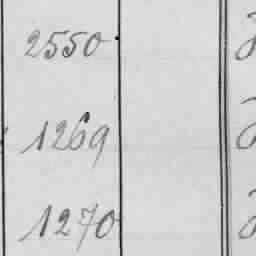 2550
1269
1270